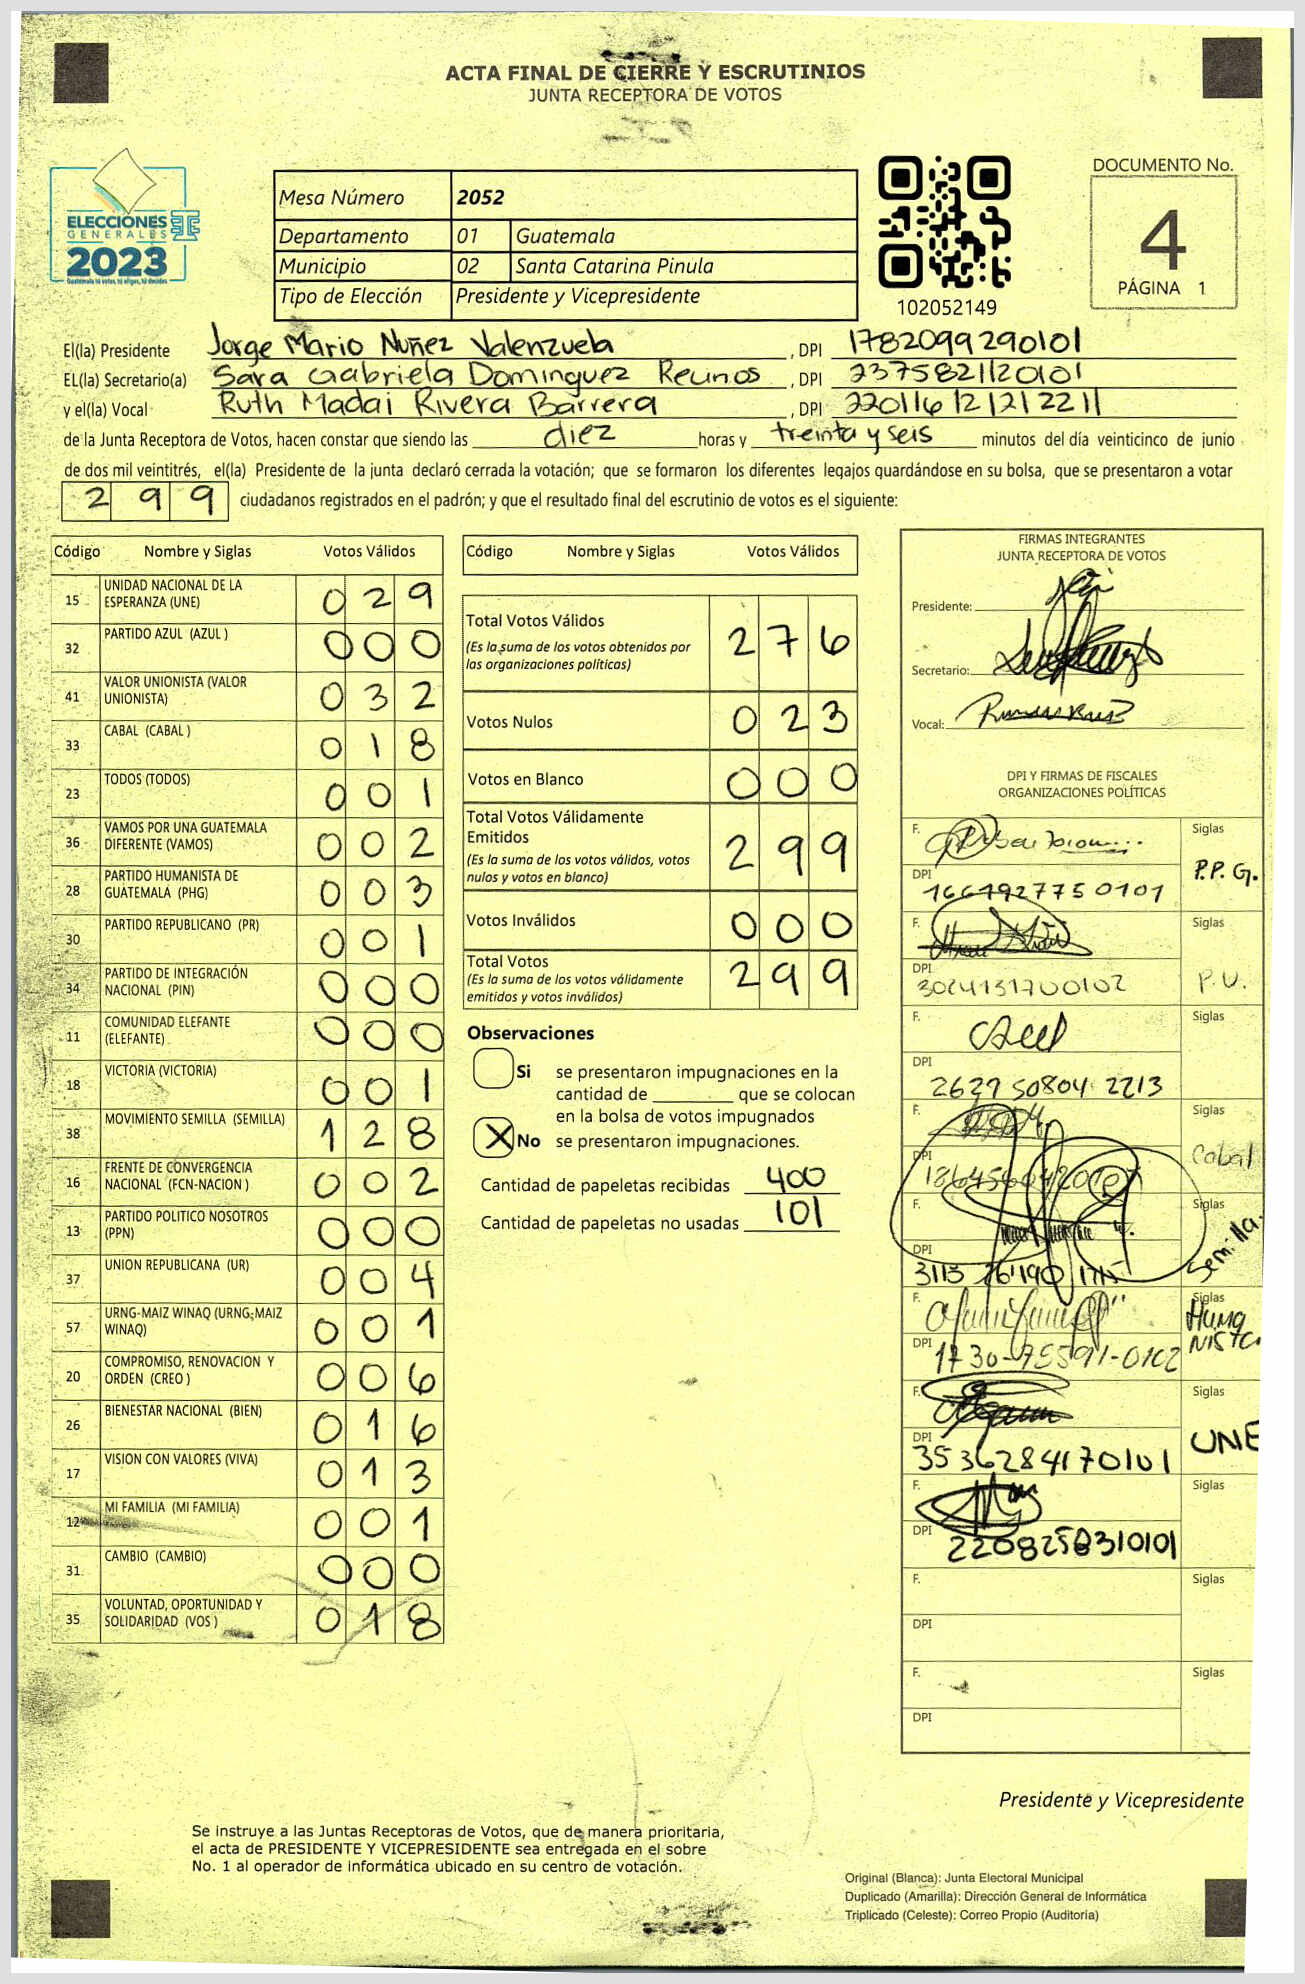 ACTA FINAL DE CIERRE Y ESCRUTINIOS
JUNTA RECEPTORA DE VOTOS
ELECCIONES
GENERALES
2023
Guatemala tú votas, tú eliges, tú decides
Mesa Número 2052
Departamento 01 Guatemala
Municipio 02 Santa Catarina Pinula
Tipo de Elección Presidente y Vicepresidente
102052149
DOCUMENTO No.
4
PÁGINA 1
El(la) Presidente Jorge Mario Nuñez Valenzuela , DPI 1782099290101
EL(la) Secretario(a) Sara Gabriela Dominguez Reunos , DPI 2375821120101
y el(la) Vocal Ruth Madai Rivera Barrera , DPI
de la Junta Receptora de Votos, hacen constar que siendo las diez horas y treinta y seis minutos del día veinticinco de junio
de dos mil veintitrés, el(la) Presidente de la junta declaró cerrada la votación; que se formaron los diferentes legajos quardándose en su bolsa, que se presentaron a votar
299 ciudadanos registrados en el padrón; y que el resultado final del escrutinio de votos es el siguiente:
Código Nombre y Siglas Votos Válidos
15 UNIDAD NACIONAL DE LA ESPERANZA (UNE) 029
32 PARTIDO AZUL (AZUL ) 000
41 VALOR UNIONISTA (VALOR UNIONISTA) 032
33 CABAL (CABAL ) 018
23 TODOS (TODOS) 001
36 VAMOS POR UNA GUATEMALA DIFERENTE (VAMOS) 002
28 PARTIDO HUMANISTA DE GUATEMALA (PHG) 003
30 PARTIDO REPUBLICANO (PR) 001
34 PARTIDO DE INTEGRACIÓN NACIONAL (PIN) 000
11 COMUNIDAD ELEFANTE (ELEFANTE) 000
18 VICTORIA (VICTORIA) 001
38 MOVIMIENTO SEMILLA (SEMILLA) 128
16 FRENTE DE CONVERGENCIA NACIONAL (FCN-NACION ) 002
13 PARTIDO POLITICO NOSOTROS (PPN) 000
37 UNION REPUBLICANA (UR) 004
57 URNG-MAIZ WINAQ (URNG-MAIZ WINAQ) 001
20 COMPROMISO, RENOVACION Y ORDEN (CREO ) 006
26 BIENESTAR NACIONAL (BIEN) 016
17 VISION CON VALORES (VIVA) 013
12 MI FAMILIA (MI FAMILIA) 001
31 CAMBIO (CAMBIO) 000
35 VOLUNTAD, OPORTUNIDAD Y SOLIDARIDAD (VOS ) 018
Código Nombre y Siglas Votos Válidos
Total Votos Válidos 276
(Es la suma de los votos obtenidos por
las organizaciones políticas)
Votos Nulos 023
Votos en Blanco 000
Total Votos Válidamente
Emitidos 299
(Es la suma de los votos válidos, votos
nulos y votos en blanco)
Votos Inválidos 000
Total Votos 299
(Es la suma de los votos válidamente
emitidos y votos inválidos)
Observaciones
Si se presentaron impugnaciones en la
cantidad de ________ que se colocan
en la bolsa de votos impugnados
X No se presentaron impugnaciones.
Cantidad de papeletas recibidas 400
Cantidad de papeletas no usadas 101
FIRMAS INTEGRANTES
JUNTA RECEPTORA DE VOTOS
Presidente:
Secretario:
Vocal:
DPI Y FIRMAS DE FISCALES
ORGANIZACIONES POLÍTICAS
F. Siglas P.P.G.
DPI
F. Siglas P.U.
DPI
F. Siglas
DPI 2627 50804 2213
F. Siglas Cabal
DPI
F. Siglas Semilla.
DPI
F. Siglas HUMANISTA
DPI
F. Siglas UNE
DPI 3536284170101
F. Siglas
DPI 2208258310101
F. Siglas
DPI
F. Siglas
DPI
Presidente y Vicepresidente
Se instruye a las Juntas Receptoras de Votos, que de manera prioritaria,
el acta de PRESIDENTE Y VICEPRESIDENTE sea entregada en el sobre
No. 1 al operador de informática ubicado en su centro de votación.
Original (Blanca): Junta Electoral Municipal
Duplicado (Amarilla): Dirección General de Informática
Triplicado (Celeste): Correo Propio (Auditoría)